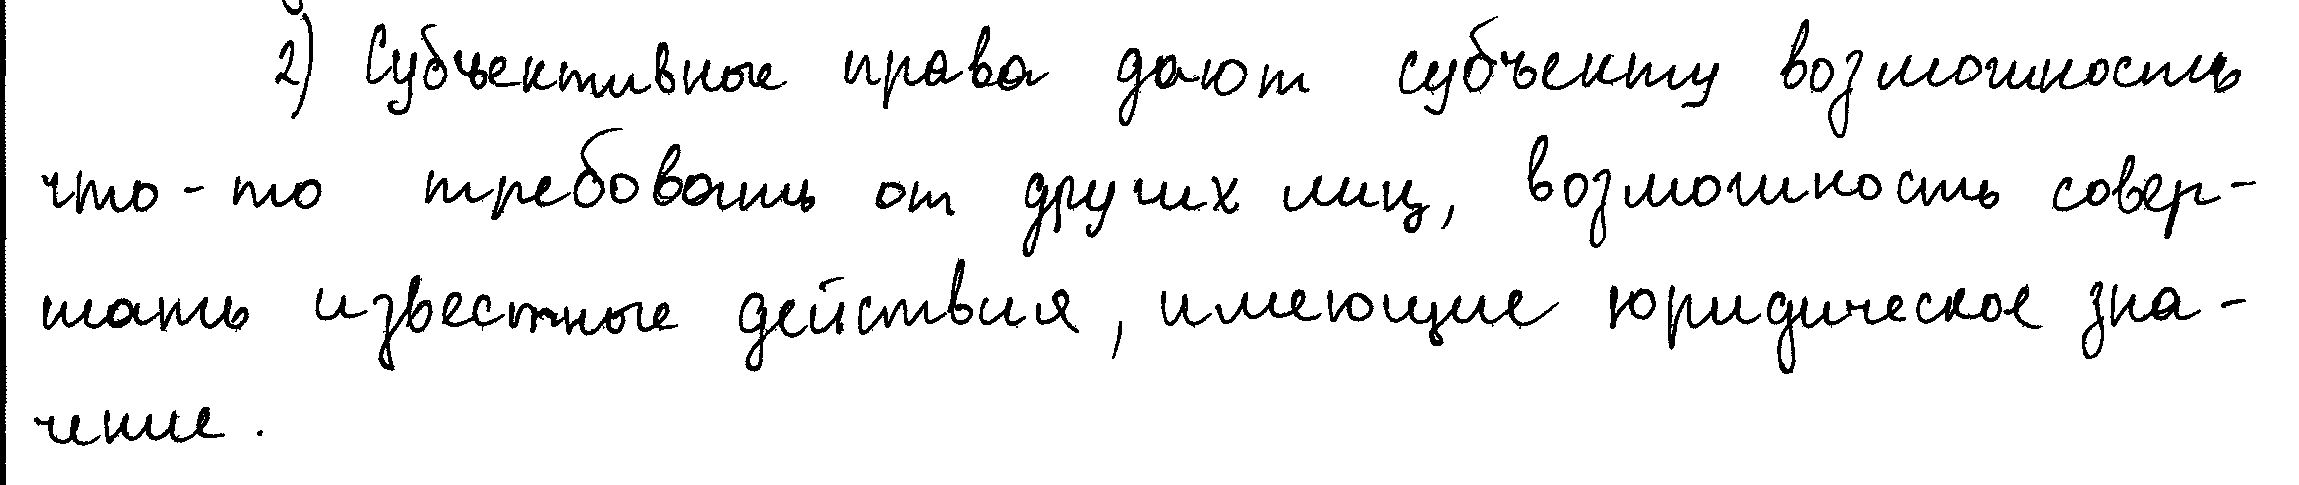 2) Субъективные права дают субъекту возможность
что-то требовать от других лиц, возможность совер-
шать известные действия, имеющие юридическое зна-
чение.